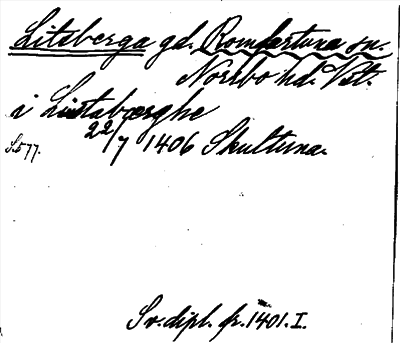 Litsberga gd. Romfartuna sn.
Norrbo hd. Vstl.
i Listabærghe
22/7 1406 Skultuna.
S.577.
Sv. dipl. fr. 1401. I.